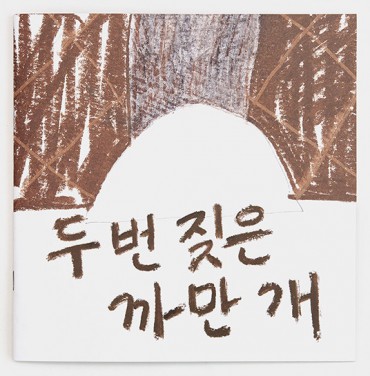 두번 짖은
까만 개